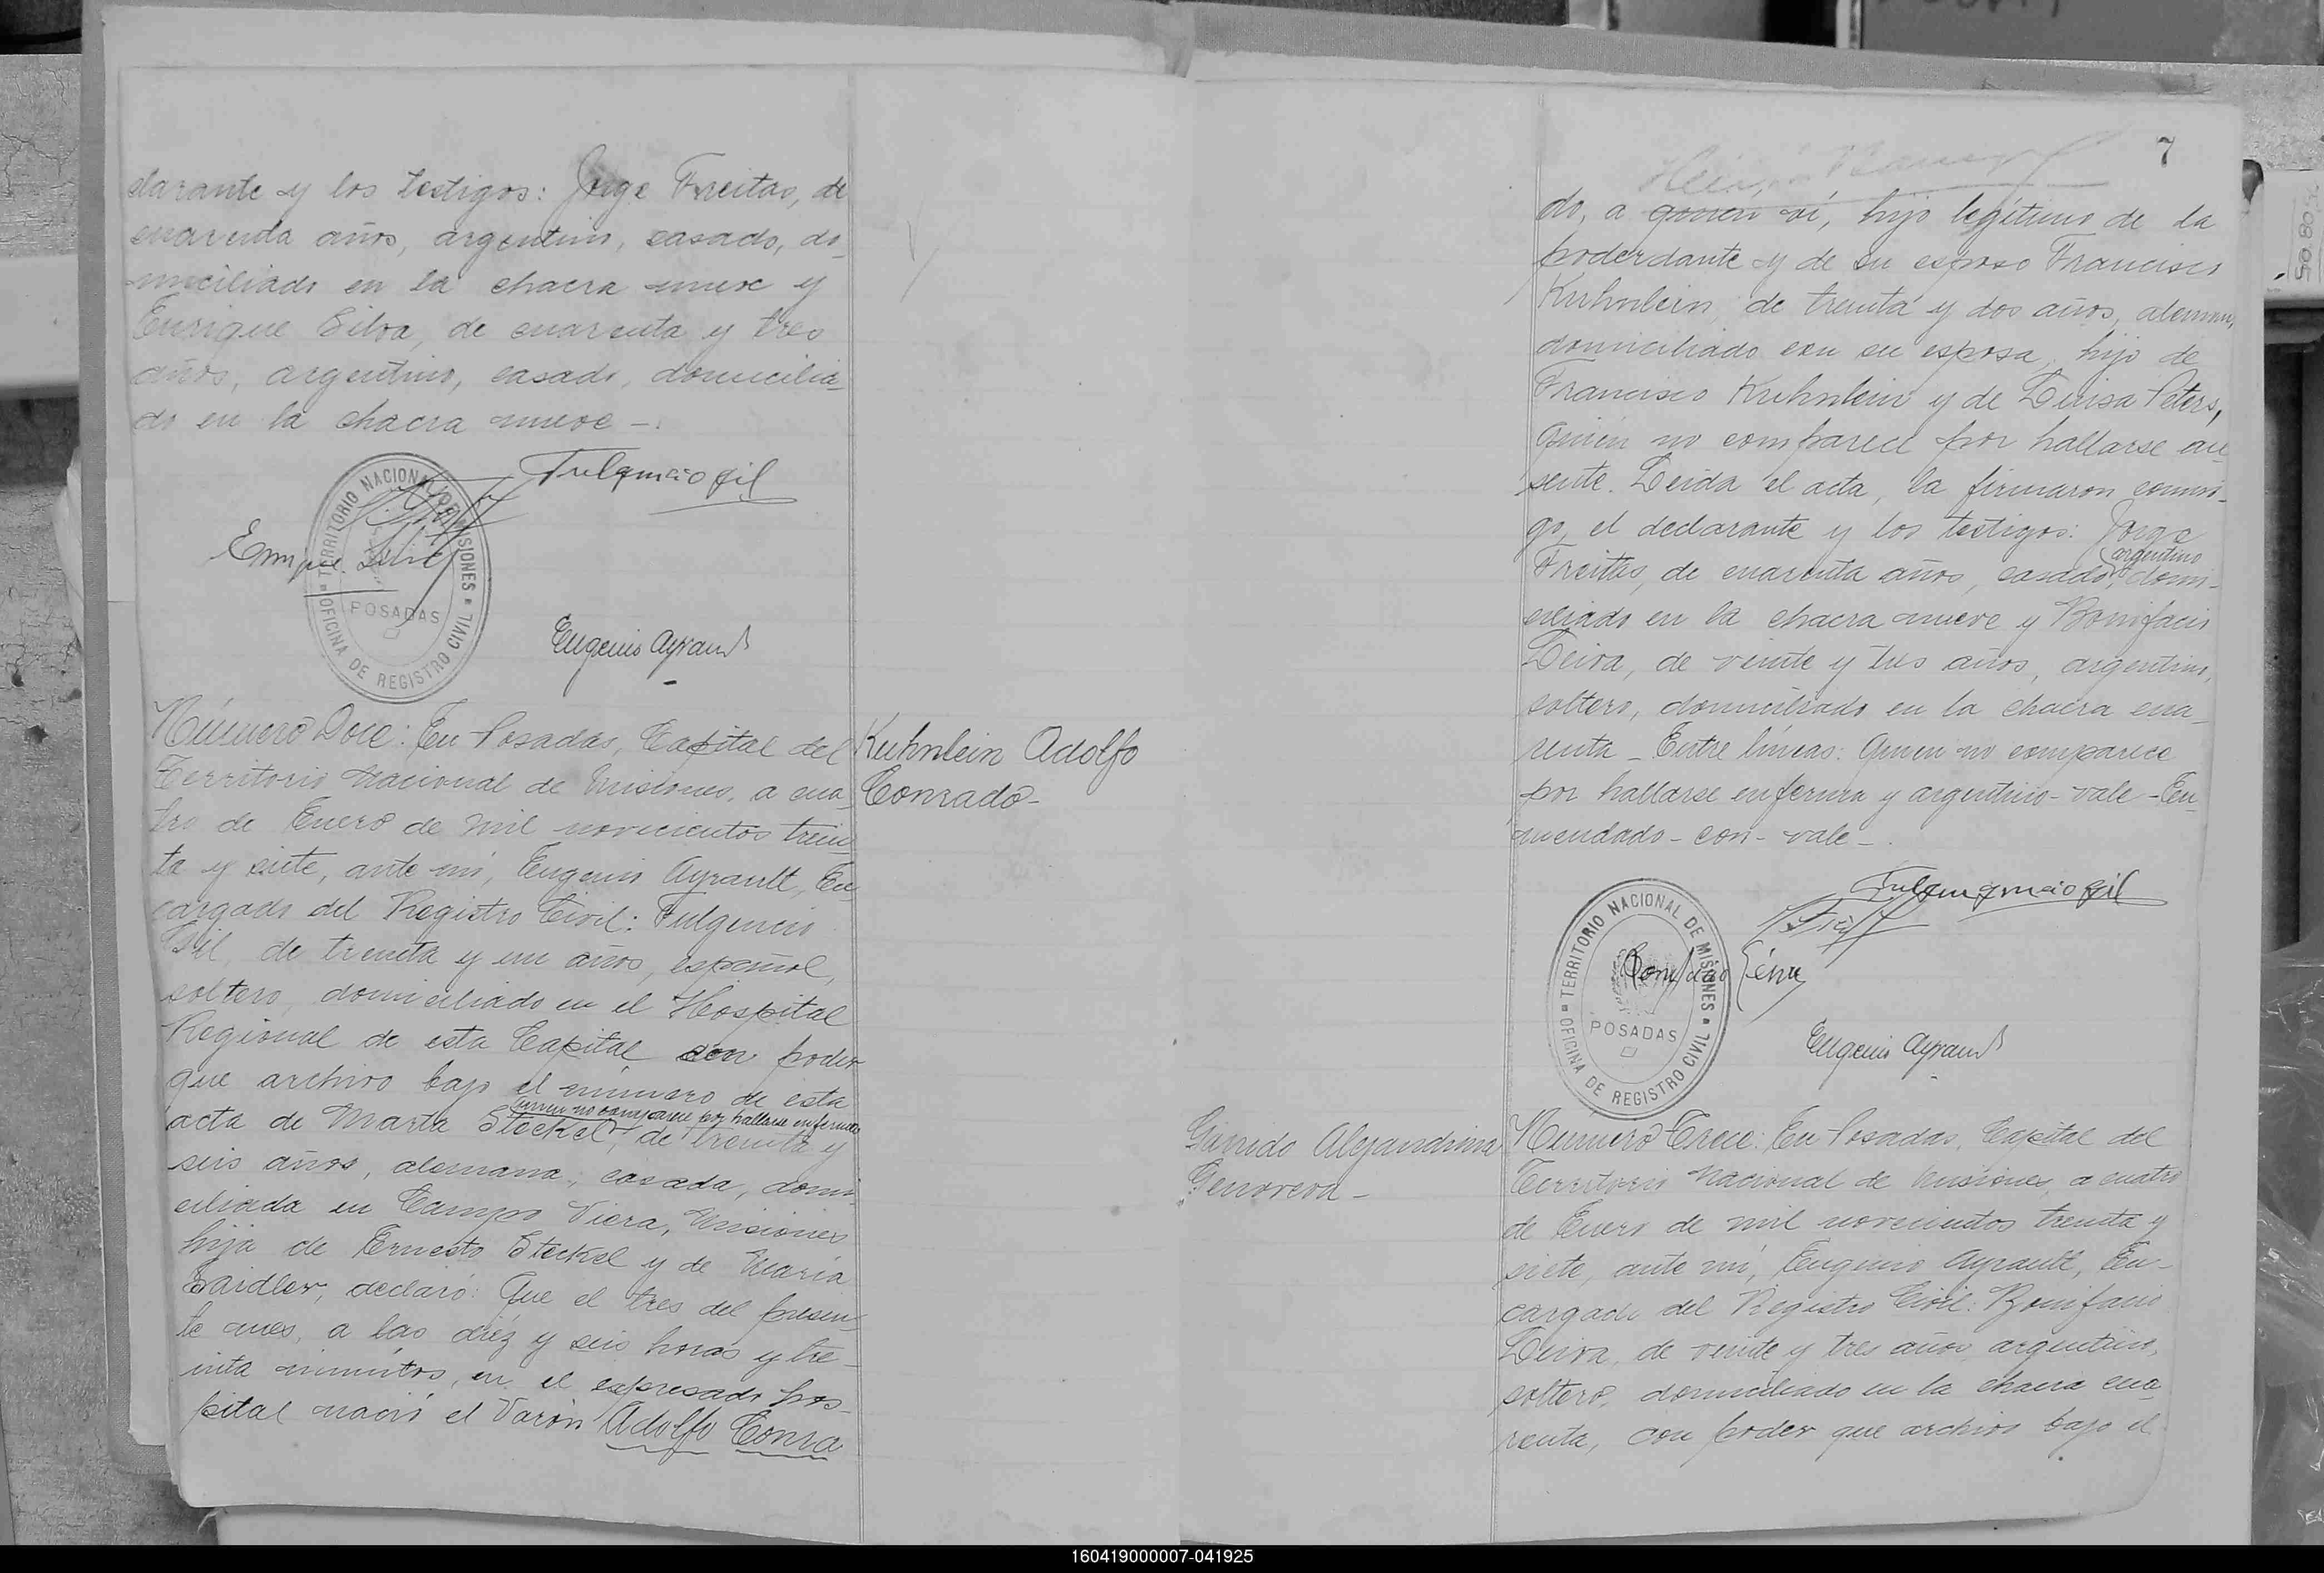 clarante y los testigos: Jorge Freitas, de
cuarenta años, argentino, casado, do-
miciliado en la chacra nueve y
Enrique Silva, de cuarenta y tres
años, argentino, casado, domicilia-
do en la chacra nueve -.
Fulgencio Gil
Enrique Silva
TERRITORIO NACIONAL DE MISIONES
POSADAS
OFICINA DE REGISTRO CIVIL
Eugenio Ayrault
Número Doce: En Posadas, Capital del
Territorio Nacional de Misiones, a cua-
tro de Enero de mil novecientos trein-
ta y siete, ante mí, Eugenio Ayrault, En-
cargado del Registro Civil: Fulgencio
Gil, de treinta y un años, español,
soltero, domiciliado en el Hospital
Regional de esta Capital con poder
que archivo bajo el número de esta
quien no comparece por hallarse enferma
acta de Marta Steckel, de treinta y
seis años, alemana, casada, domi-
ciliada en Campo Viera, Misiones
hija de Ernesto Steckel y de María
Saidler, declaró: Que el tres del presen-
te mes, a las diéz y seis horas y tre-
inta minutos, en el expresado hos-
pital nació el Varón Adolfo Conra
Kuhnlein Adolfo
Conrado-
7
do, a quien ví, hijo legítimo de la
poderdante y de su esposo Francisco
Kuhnlein, de treinta y dos años, aleman,
domiciliado con su esposa, hijo de
Francisco Kuhnlein y de Luisa Peters,
quien no comparece por hallarse au-
sente. Leída el acta, la firmaron conmi-
go, el declarante y los testigos: Jorge
argentino
Freitas, de cuarenta años, casado, domi-
ciliado en la chacra nueve y Bonifacio
Leiva, de veinte y tres años, argentino,
soltero, domiciliado en la chacra cua-
renta - Entre líneas: quien no comparece
por hallarse enferma y argentino - vale - En-
mendado - con - vale -.
Fulgencio Gil
Bonifacio Leiva
TERRITORIO NACIONAL DE MISIONES
POSADAS
OFICINA DE REGISTRO CIVIL
Eugenio Ayrault
Garrido Alejandrina
Genoveva -
Número Trece: En Posadas, Capital del
Territorio Nacional de Misiones, a cuatro
de Enero de mil novecientos treinta y
siete, ante mí, Eugenio Ayrault, En-
cargado del Registro Civil: Bonifacio
Leiva, de veinte y tres años argentino,
soltero, domiciliado en la chacra cua
renta, con poder que archivo bajo el
160419000007-041925